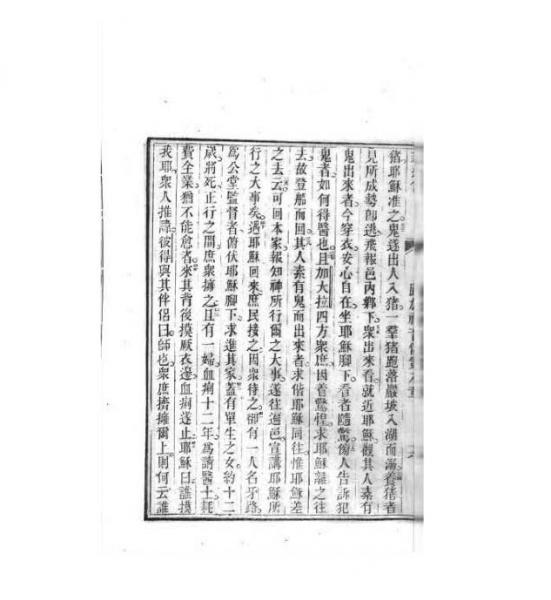 猪耶穌准之鬼遂出人入猪一羣猪跑落巖坡入湖而溺養猪者
見所成勢卽逃飛報邑內鄕下衆出來看就近耶穌觀其人素有
鬼出來者今穿衣安心自在坐耶穌脚下看者隨驚偹人告訴犯
鬼者如何得醫也且加大拉四方衆庶因着驚惶求耶穌離之往
去故登船而回其人素有鬼而出來者求偕耶穌同往惟耶穌差
之去云可回本家報知神所行爾之大事遂往遍邑宣講耶穌所
行之大事矣遇耶穌回來庶民接之因衆待之卻有一人名牙路
爲公堂監督者俯伏耶穌脚下求進其家蓋有單生之女約十二
歲將死正行之間庶衆擁之且有一婦血痢十二年爲請醫士耗
費全業猶不能愈者來其背後摸厥衣邊血痢遂止耶穌曰誰摸
我耶衆人推諱彼得與其伴侶曰師也衆庶擠擁爾上則何云誰